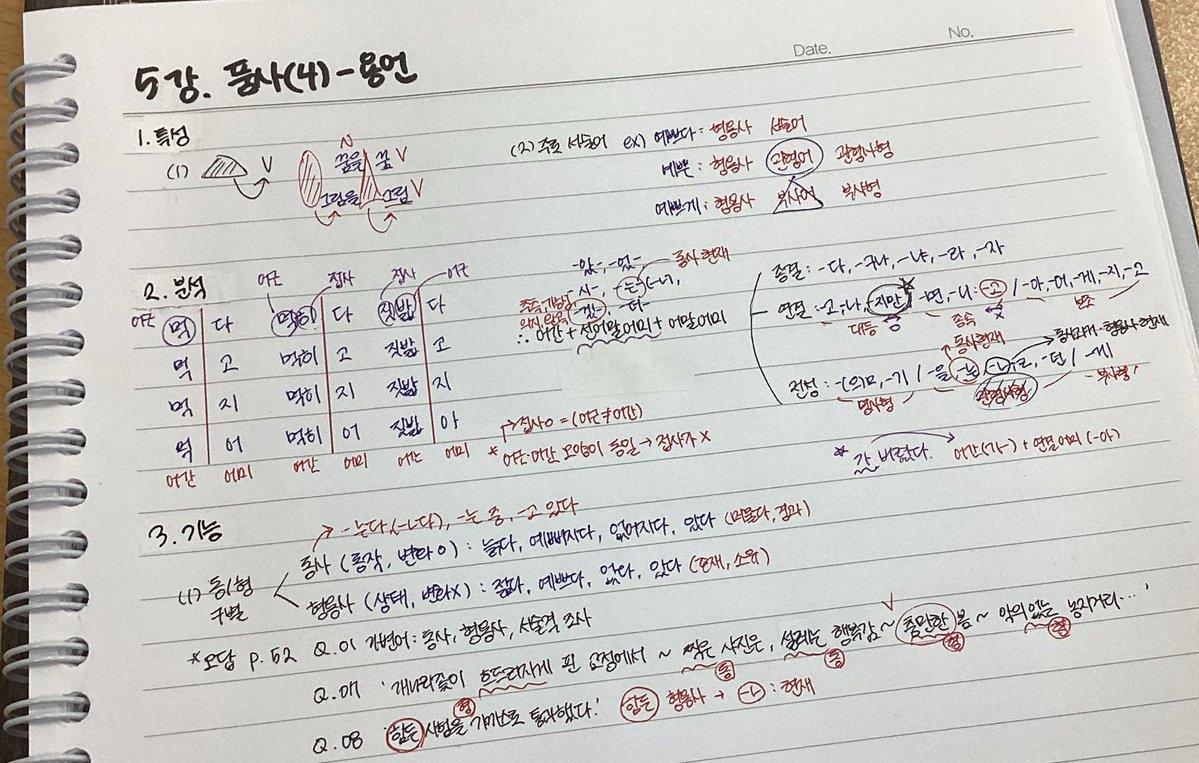 Date.
No.
5강. 품사(4) - 용언
1. 특성
(1) V
N
꿈을 꿈 V
그림을 그림 V
(2) 주로 서술어 ex) 예쁘다: 형용사 서술어
예쁜: 형용사 관형어 관형사형
예쁘게: 형용사 부사어 부사형
2. 분석
어근 접사 접사 어근
어근 먹 다 먹히 다 짓밟 다
먹 고 먹히 고 짓밟 고
먹 지 먹히 지 짓밟 지
먹 어 먹히 어 짓밟 아
어간 어미 어간 어미 어간 어미
-았-, -었- 동사 현재
-시-, -는-(-ㄴ-),
-겠-, -더-
∴ 어간 + 선어말 어미 + 어말 어미
접사 O = (어근≠어간)
* 어근·어간 모양이 동일 → 접사가 X
종결: -다, -구나, -냐, -라, -자
연결: -고, -나, -지만 * -면, -니, -고 / -아, -어, -게, -지, -고
대등 종속 보조
동사현재
동사과거·형용사현재
전성: -(으)ㅁ, -기 / -을, -는, -ㄴ, -ㄹ, -던 / -게
명사형 관형사형 부사형
* 가 버렸다. 어간(가-) + 연결 어미(-아)
3. 기능
→ -는다(-ㄴ다), -는 중, -고 있다
(1) 동/형 구별
동사 (동작, 변화 O): 늙다, 예뻐지다, 없어지다, 있다 (머물다, 경과)
형용사 (상태, 변화X): 젊다, 예쁘다, 없다, 있다 (존재, 소유)
*오답 p.52 Q.01 가변어: 동사, 형용사, 서술격 조사
Q.07 '개나리꽃이 흐드러지게 핀 교정에서 ~ 찍은 사진은, 설레는 행복감 ~ 충만한 봄 ~ 악의 없는 농지거리…'
형 동 동 형 형
Q.08 힘든 시험을 가까스로 통과했다.' 힘든 형용사 → -ㄴ: 현재